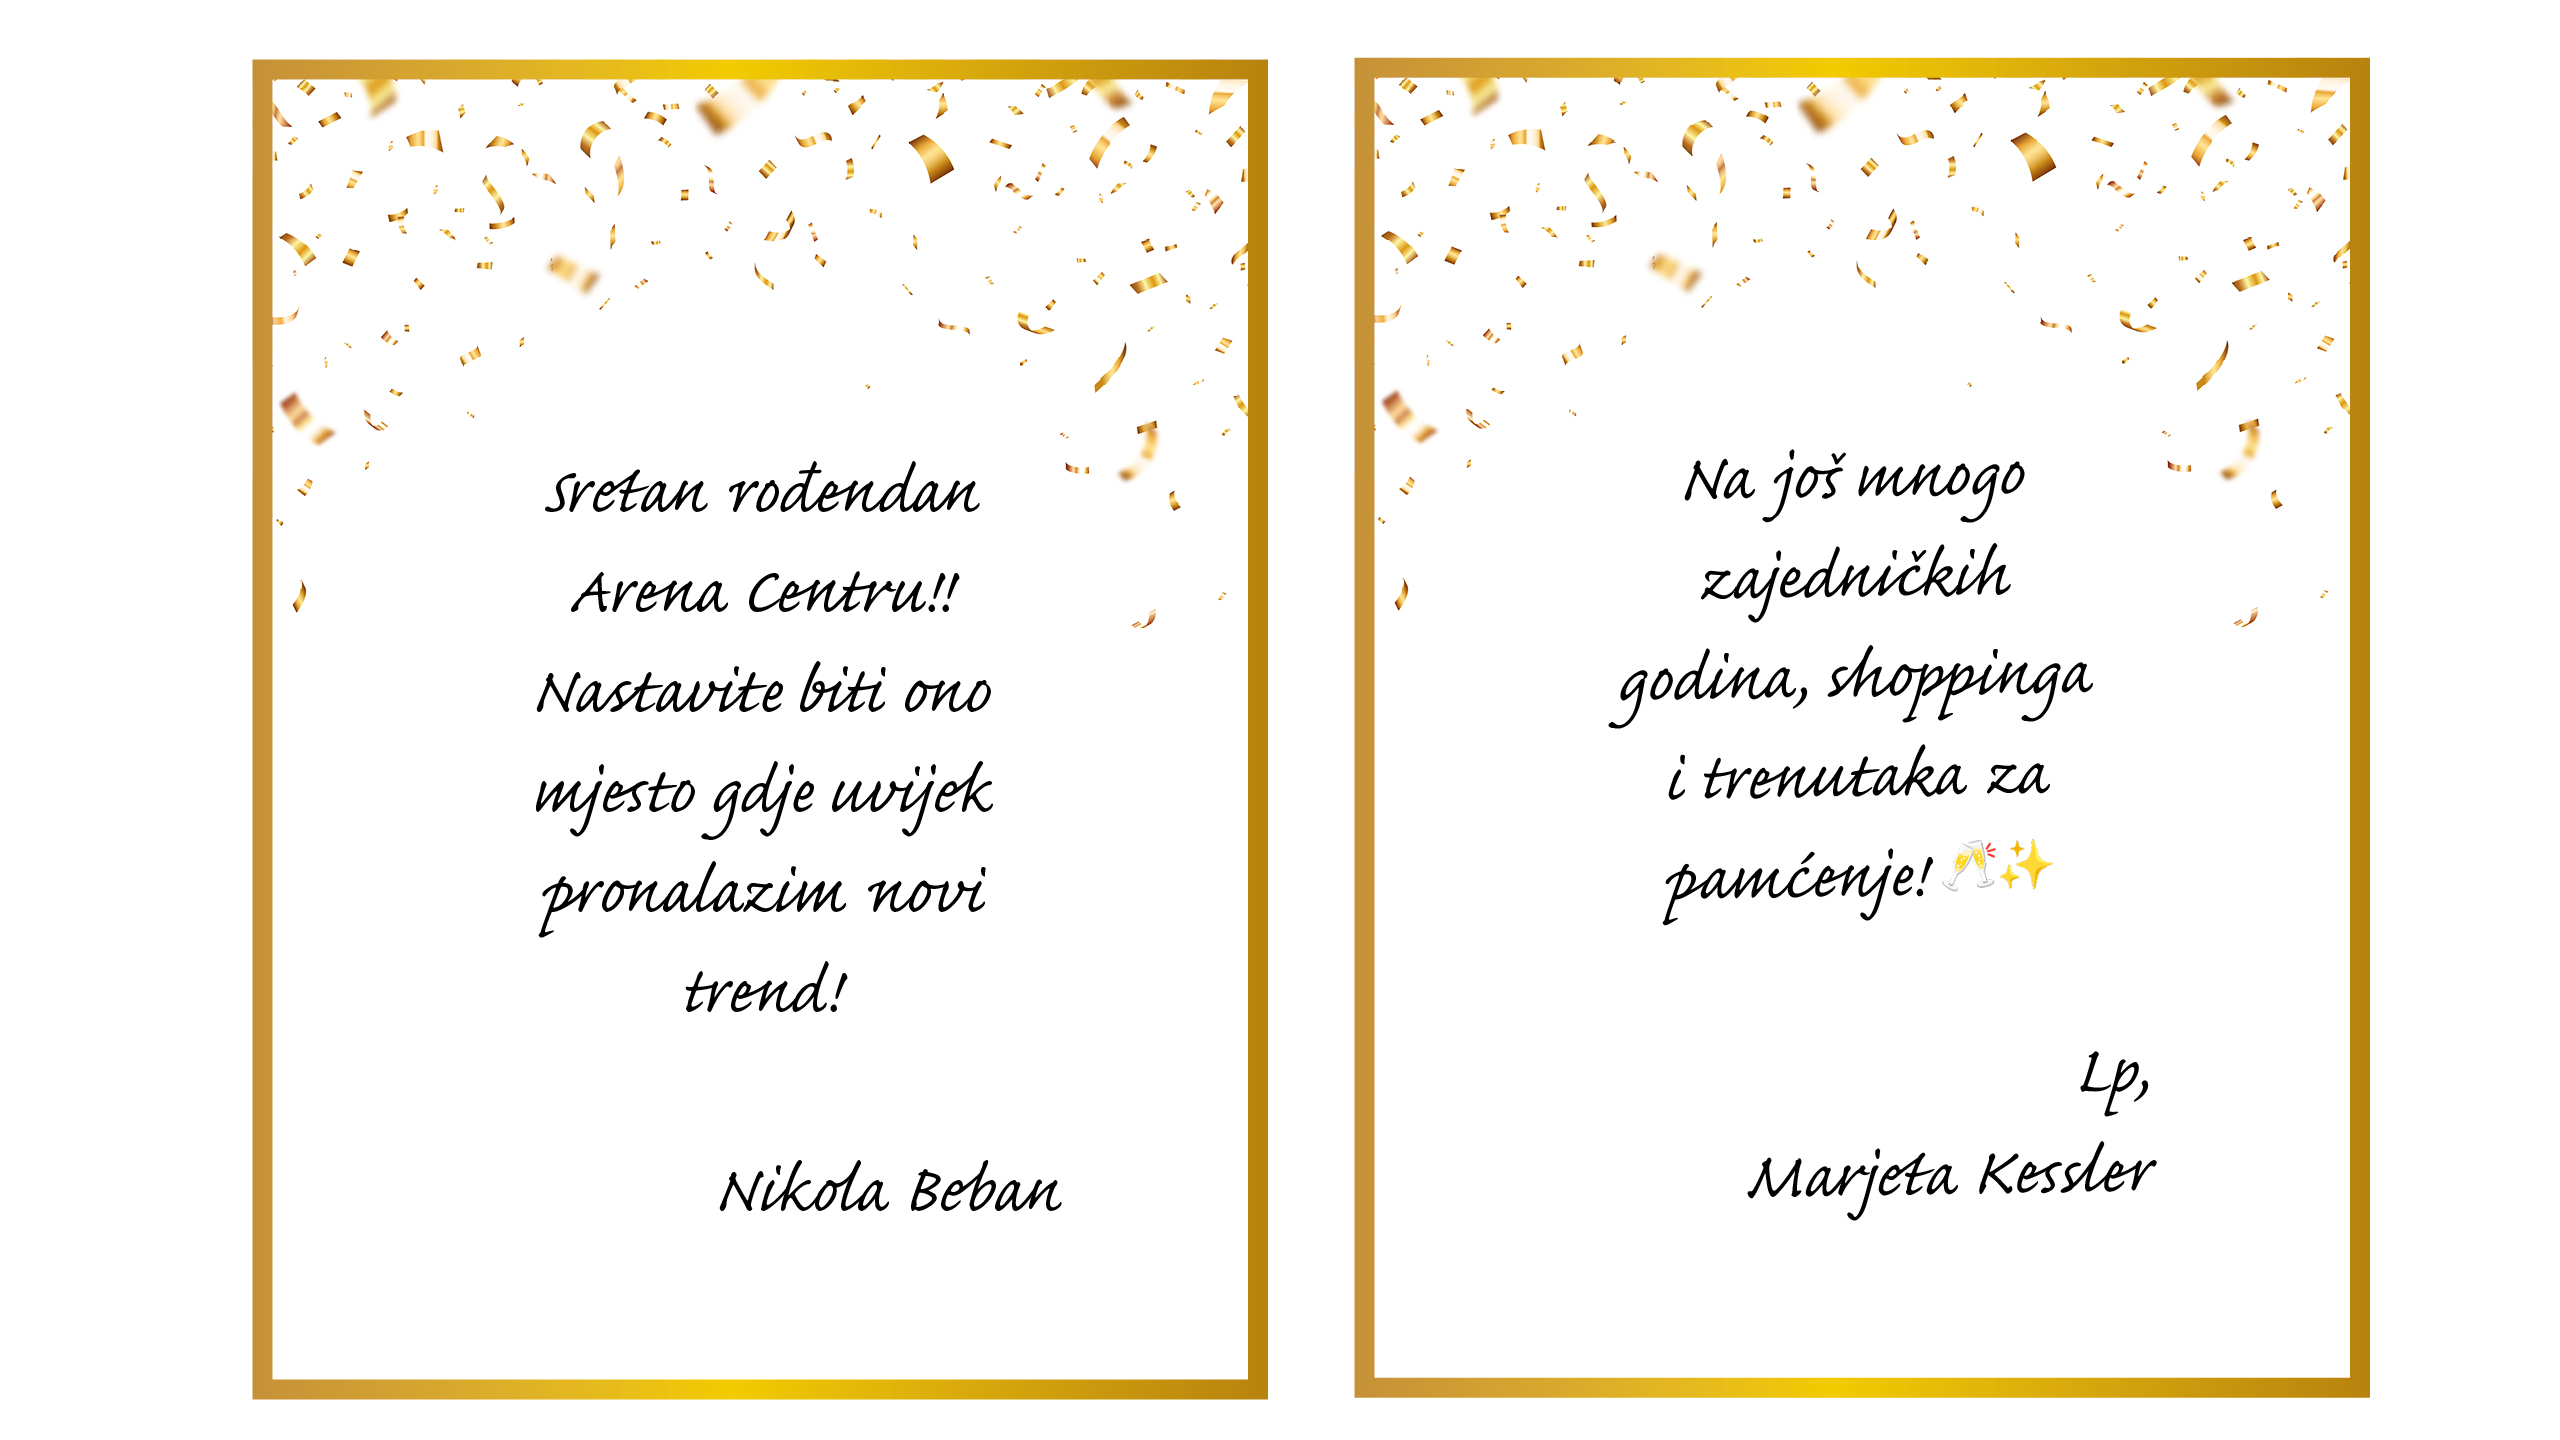 Sretan rođendan
Arena Centru!!
Nastavite biti ono
mjesto gdje uvijek
pronalazim novi
trend!
Nikola Beban
Na još mnogo
zajedničkih
godina, shoppinga
i trenutaka za
pamćenje! 🥂✨
Lp,
Marjeta Kessler